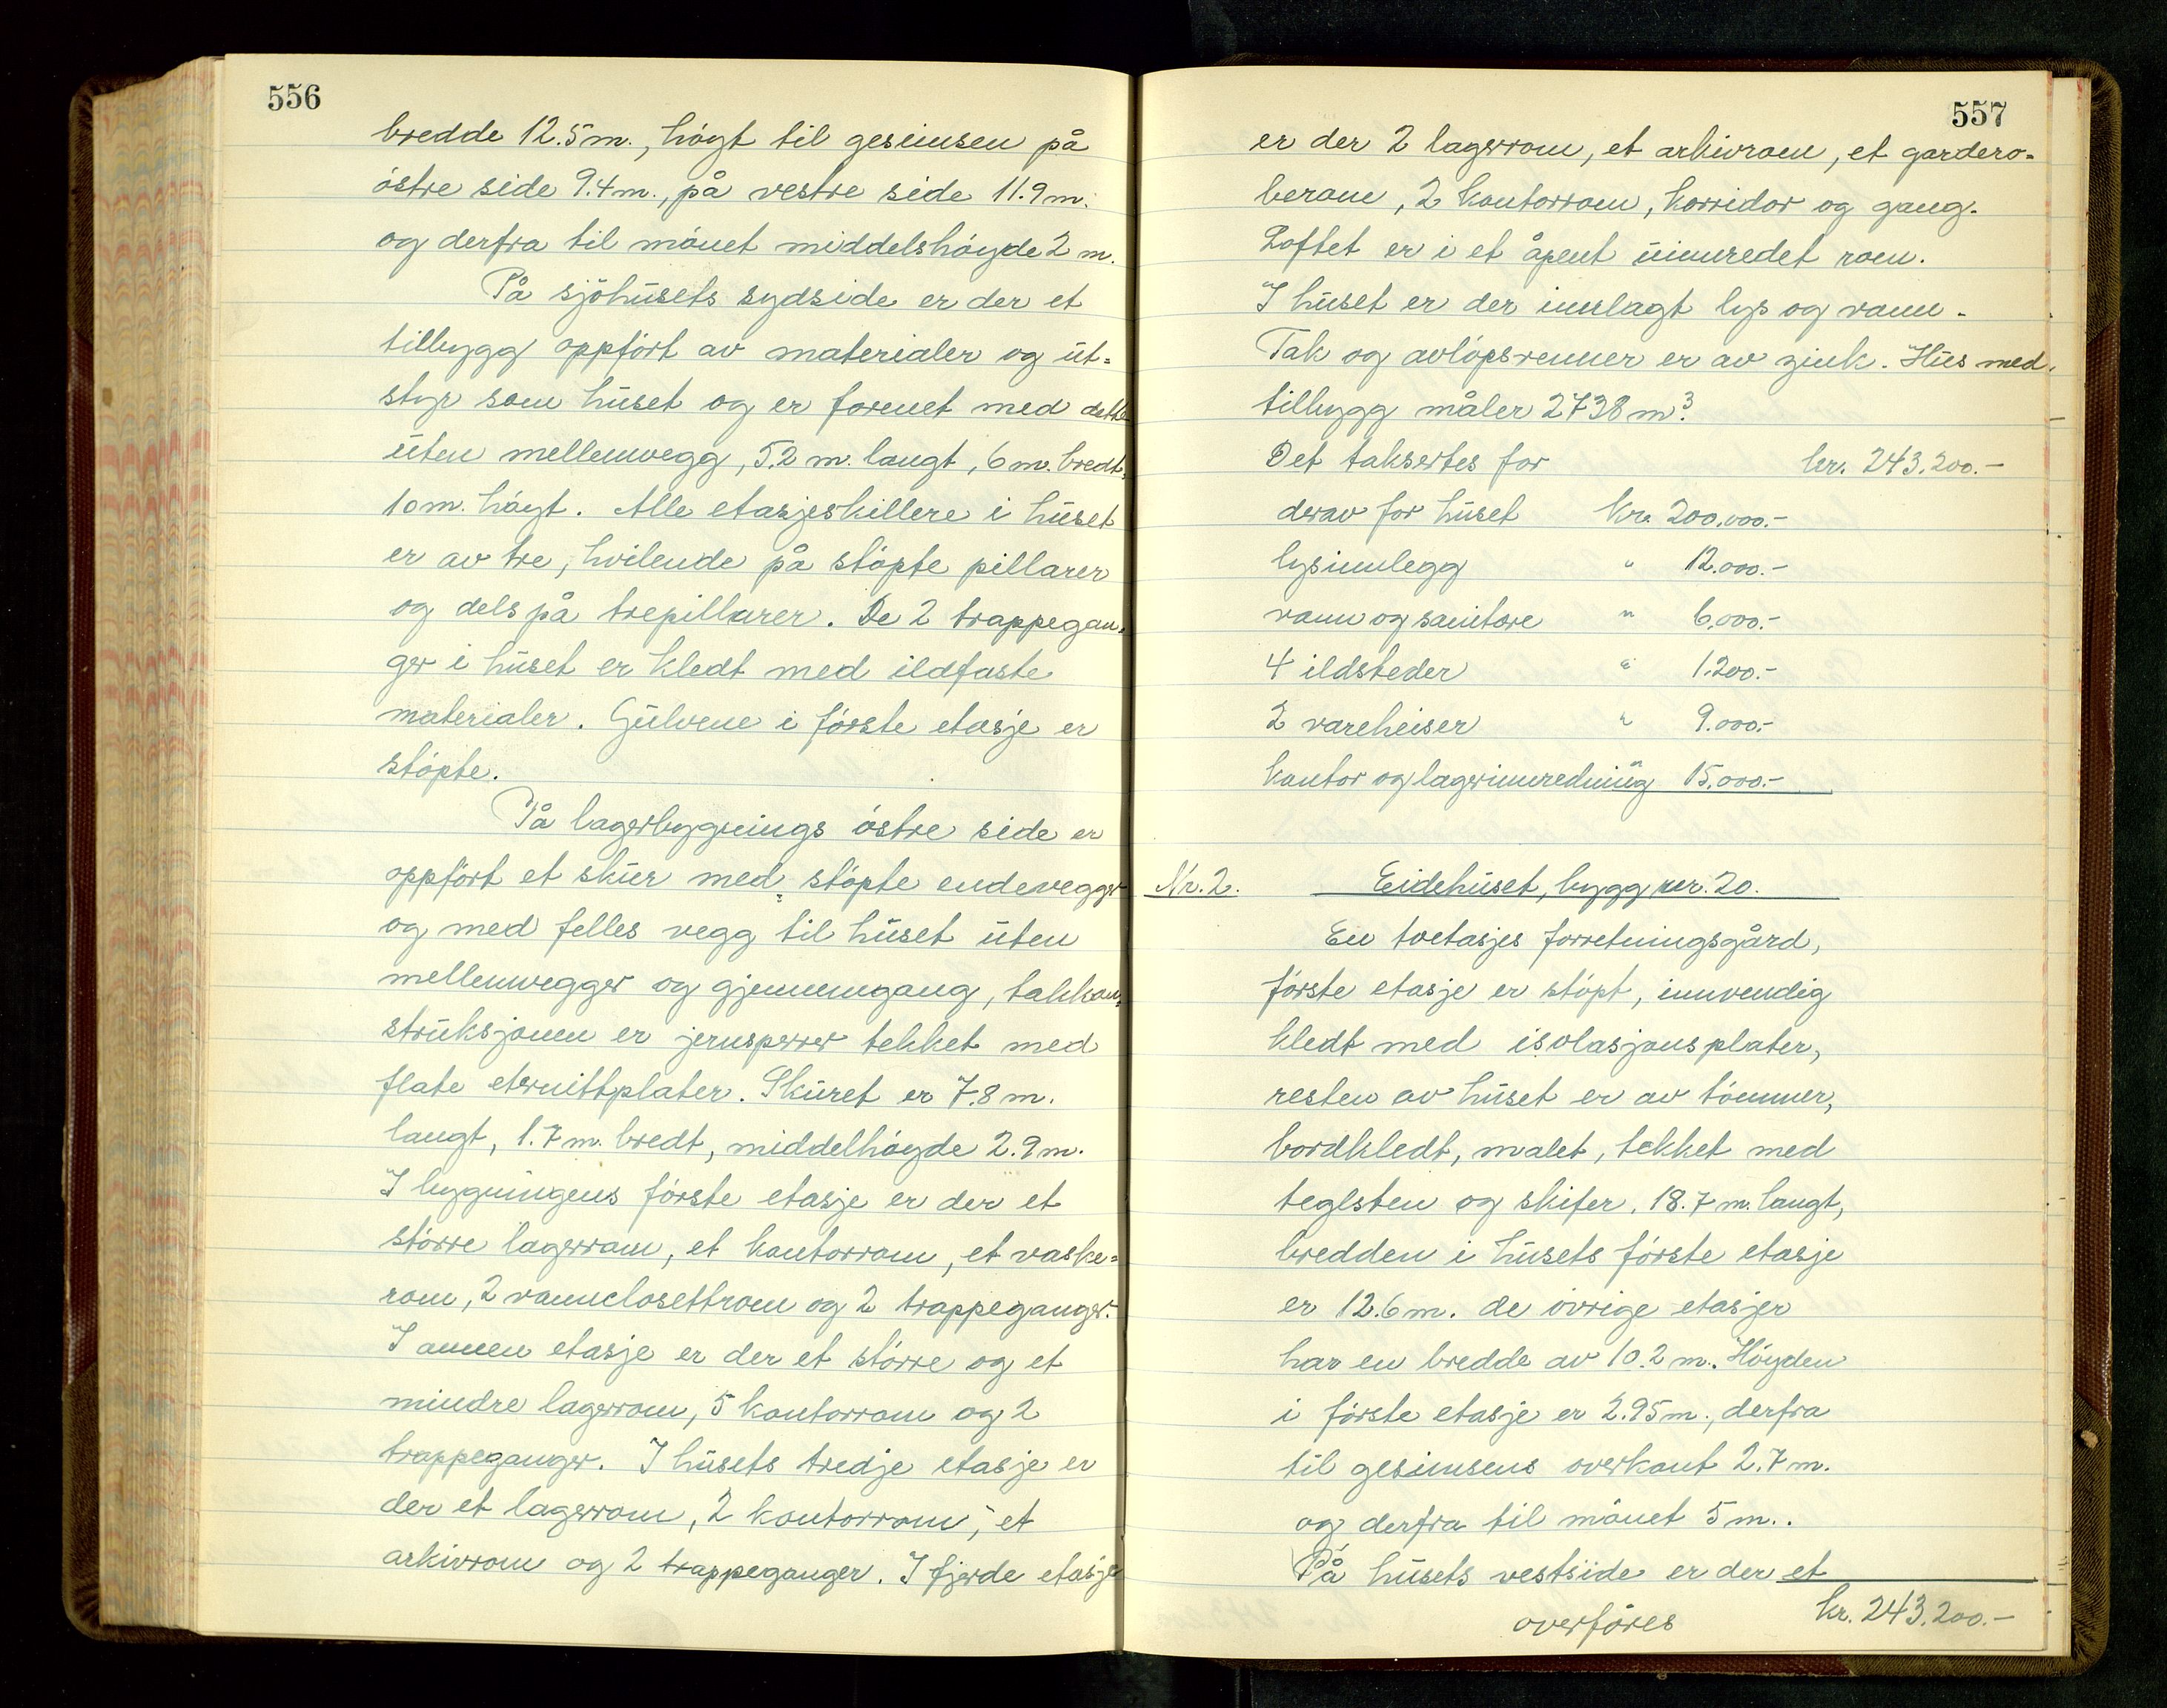 556
bredde 12.5 m., högt til gesimsen på
östre side 9.4 m., på vestre side 11.9 m.
og derfra til mönet middelshöyde 2 m.
På sjöhusets sydside er der et
tilbygg oppfört av materialer og ut=
styr som huset og er forenet med dette
uten mellemvegg, 5.2 m. langt, 6 m. bredt,
10 m. högt. Alle etasjeskillere i huset
er av tre, hvilende på stöpte pillarer
og dels på trepillarer. De 2 trappegan-
ger i huset er kledt med ildfaste
materialer. Gulvene i förste etasje er
stöpte.
På lagerbygnings östre side er
oppfört et skur med stöpte endevegger
og med felles vegg til huset uten
mellemvegger og gjennemgang, takkon=
struksjonen er jernsperrer tekket med
flate eternittplater. Skuret er 7.8 m.
langt, 1.7 m. bredt, middelhöyde 2.9 m.
I bygningens förste etasje er der et
större lagerrom, et kontorrom, et vaske=
rom, 2 vannclosettrom og 2 trappeganger.
I annen etasje er der et större og et
mindre lagerrom, 5 kontorrom og 2
trappeganger. I husets tredje etasje er
der et lagerrom, 2 kontorrom, et
arkivrom og 2 trappeganger. I fjerde etasje
557
er der 2 lagerrom, et arkivrom, et gardero-
berom, 2 kontorrom, korridor og gang.
Loftet er i et åpent uinnredet rom.
I huset er der innlagt lys og vann.
Tak og avlöpsrenner er av zink. Hus med
tilbygg måler 2738 m³.
Det taksertes for kr. 243.200.-
derav for huset kr. 200.000.-
lysinnlegg " 12.000.-
vann og sanitære " 6.000.-
4 ildsteder " 1.200.-
2 vareheiser " 9.000.-
kontor og lagerinnredning " 15.000.-
Nr. 2. Eidehuset, bygg nr. 20.
En toetasjes forretningsgård,
förste etasje er stöpt, innvendig
kledt med isolasjonsplater,
resten av huset er av tömmer,
bordkledt, malet, tekket med
teglsten og skifer, 18.7 m. langt,
bredden i husets förste etasje
er 12.6 m. de övrige etasjer
har en bredde av 10.2 m. Höyden
i förste etasje er 2.95 m., derfra
til gesimsens overkant 2.7 m.
og derfra til mönet 5 m..
På husets vestside er der et
overföres kr. 243.200.-